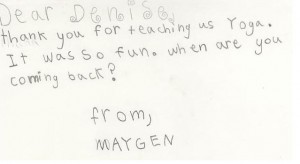 Dear Denise,
thank you for teaching us Yoga.
It was so fun. when are you
coming back?
from,
MAYGEN